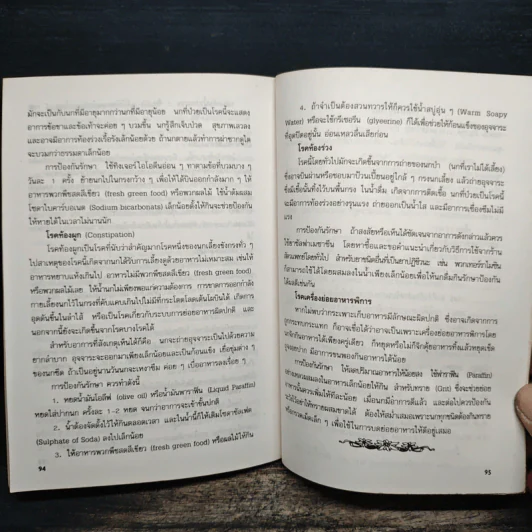 มักจะเป็นกับนกที่มีอายุมากกว่านกที่มีอายุน้อย นกที่ป่วยเป็นโรคนี้จะแสดง
อาการข้อขาและข้อเท้าจะค่อย ๆ บวมขึ้น นกรู้สึกเจ็บปวด สุขภาพเลวลง
และอาจมีอาการท้องร่วงเรื้อรังเล็กน้อยด้วย ถ้านกตายแล้วทำการผ่าซากดูไต
จะบวมกว่าธรรมดาเล็กน้อย
การป้องกันรักษา ใช้ทิงเจอร์ไอโอดีนอ่อน ๆ ทาตามข้อที่บวมบาง ๆ
วันละ 1 ครั้ง ย้ายนกไปในกรงกว้าง ๆ เพื่อให้ได้บินออกกำลังมาก ๆ ให้
อาหารพวกพืชสดสีเขียว (fresh green food) หรือพวกผลไม้ ใช้น้ำต้มผสม
โซดาไบคาร์บอเนต (Sodium bicarbonate) เล็กน้อยตั้งให้กินจะช่วยป้องกัน
ให้หายได้ในเวลาไม่นานนัก
โรคท้องผูก (Constipation)
โรคท้องผูกเป็นโรคที่นับว่าสำคัญมากโรคหนึ่งของนกเลี้ยงขังกรงทั่ว ๆ
ไปสาเหตุของโรคนี้เกิดจากนกได้รับการเลี้ยงดูด้วยอาหารไม่เหมาะสม เช่นให้
อาหารหยาบแห้งเกินไป อาหารไม่มีพืชสดสีเขียว (fresh green food)
หรือพวกผลไม้เลย ให้น้ำนกไม่เพียงพอแก่ความต้องการ การขาดการออกกำลัง
กายเลี้ยงนกไว้ในกรงที่คับแคบเกินไปไม่มีที่กระโดดโลดเต้นบินได้ เกิดการ
อุดตันขึ้นในลำไส้ หรือเป็นโรคเกี่ยวกับระบบการย่อยอาหารผิดปกติ และ
นอกจากนี้ยังจะเกิดขึ้นจากโรคบางโรคได้
สำหรับอาการที่สังเกตุเห็นได้ก็คือ นกจะถ่ายอุจจาระเป็นไปด้วยความ
ยากลำบาก อุจจาระจะออกมาเพียงเล็กน้อยและเป็นก้อนแข็ง เยื่อชุ่มต่าง ๆ
ของนกซีด ถ้าเป็นอยู่นานวันนกจะเหงาซึม ค่อย ๆ เบื่ออาหารลงเรื่อย ๆ
การป้องกันรักษา ควรทำดังนี้
1. หยดน้ำมันโอลีฟ (olive oil) หรือน้ำมันพาราฟิน (Liquid Paraffin)
หยดใส่ปากนก ครั้งละ 1-2 หยด จนกว่าอาการจะเข้าขั้นปกติ
2. น้ำต้องจัดตั้งไว้ให้กินตลอดเวลา และในน้ำนี้ก็ให้เติมโซดาซัลเฟต
(Sulphate of Soda) ลงไปเล็กน้อย
3. ให้อาหารพวกพืชสดสีเขียว (fresh green food) หรือผลไม้ให้กิน
94
4. ถ้าจำเป็นต้องสวนทวารให้ก็ควรใช้น้ำสบู่อุ่น ๆ (Warm Soapy
Water) หรือจะใช้กรีเซอรีน (glyeerine) ก็ได้เพื่อช่วยให้ก้อนแข็งของอุจจาระ
ที่อุดปิดอยู่นั้น อ่อนเหลวลื่นเลียก่อน
โรคท้องร่วง
โรคนี้โดยทั่วไปมักจะเกิดขึ้นจากการถ่ายของนกป่า (นกที่เราไม่ได้เลี้ยง)
ซึ่งอาจจะเป็นผ่านหรือชอบมาบินวนเปี้ยนอยู่ใกล้ ๆ กรงนกเลี้ยง แล้วถ่ายอุจจาระ
ซึ่งมีเชื้อนั้นทิ้งไว้บนพื้นกรง ในน้ำดื่ม เกิดจากการติดเชื้อ นกที่ป่วยเป็นโรคนี้
จะมีอาการท้องร่วงอย่างรุนแรง ถ่ายออกเป็นน้ำใส และมีอาการเซื่องซึมไม่มี
แรง
การป้องกันรักษา ถ้าสงสัยหรือเห็นได้ชัดเจนจากอาการดังกล่าวแล้วควร
ใช้ยาซัลฟาเมซาธีน โดยหาซื้อและขอคำแนะนำเกี่ยวกับวิธีการใช้จากร้าน
สัตวแพทย์โดยทั่วไป สำหรับยาชนิดอื่นที่เป็นยาปฏิชีวนะ เช่น พวกเทอร์รามัยซิน
ก็สามารถใช้ได้โดยผสมลงในน้ำเพียงเล็กน้อยเพื่อให้นกดื่มกินรักษาป้องกัน
ได้ผลดีเช่นกัน
โรคเครื่องย่อยอาหารพิการ
หากไม่พบว่ากระเพาะเก็บอาหารมีลักษณะผิดปกติ ซึ่งอาจเกิดจากการ
ถูกกระทบกระแทก ก็อาจเชื่อได้ว่าอาจจะเป็นเพราะเครื่องย่อยอาหารพิการโดย
นกจะจิกกินอาหารได้เพียงครู่เดียว ก็หยุดหรือไม่ก็จิกคุ้ยอาหารทิ้งแล้วหยุดเช็ด
จะงอยปาก มีอาการขนพองกินอาหารได้น้อย
การป้องกันรักษา ให้ลดปริมาณอาหารให้น้อยลง ใช้พาราฟิน (Paraffin)
อย่างเหลวผสมลงในอาหารเล็กน้อยให้กิน สำหรับทราย (Grit) ซึ่งจะช่วยย่อย
อาหารนั้นควรเพิ่มให้ทีละน้อย เมื่อนกมีอาการดีแล้ว และต่อไปควรป้องกัน
ระวังโดยให้ทรายผสมขาดไม่ได้ ต้องให้สม่ำเสมอเพราะนกทุกชนิดต้องกินทราย
หรือกรวดเม็ดเล็ก ๆ เพื่อใช้ในการบดย่อยอาหารให้ดีอยู่เสมอ
95